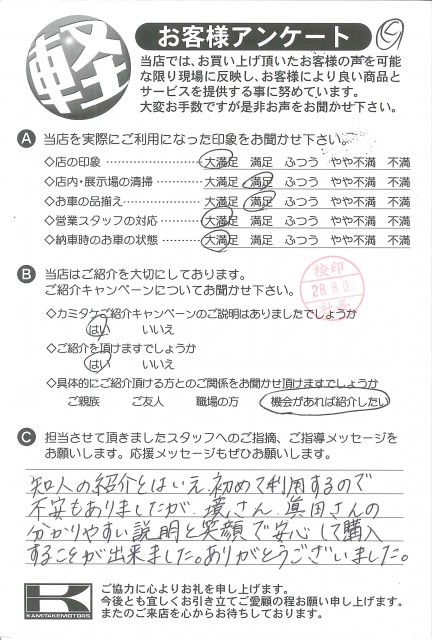 軽
お客様アンケート
当店では、お買い上げ頂いたお客様の声を可能
な限り現場に反映し、お客様により良い商品と
サービスを提供する事に努めています。
大変お手数ですが是非お声をお聞かせ下さい。
A 当店を実際にご利用になった印象をお聞かせ下さい。
◇店の印象 ………………… 大満足 満足 ふつう やや不満 不満
◇店内・展示場の清掃 ……… 大満足 満足 ふつう やや不満 不満
◇お車の品揃え …………… 大満足 満足 ふつう やや不満 不満
◇営業スタッフの対応 ……… 大満足 満足 ふつう やや不満 不満
◇納車時のお車の状態 ……… 大満足 満足 ふつう やや不満 不満
B 当店はご紹介を大切にしております。
ご紹介キャンペーンについてお聞かせ下さい。
検印
28.8.0
◇カミタケご紹介キャンペーンのご説明はありましたでしょうか
はい いいえ
◇ご紹介を頂けますでしょうか
はい いいえ
◇具体的にご紹介頂ける方とのご関係をお聞かせ頂けますでしょうか
ご親族 ご友人 職場の方 機会があれば紹介したい
C 担当させて頂きましたスタッフへのご指摘、ご指導メッセージを
お願いします。応援メッセージもぜひお願いします。
知人の紹介とはいえ、初めて利用するので
不安もありましたが、さん、真田さんの
分かりやすい説明と笑顔で安心して購入
することが出来ました。ありがとうございました。
K
KAMITAKEMOTORS
ご協力に心よりお礼を申し上げます。
今後とも宜しくお引き立てご愛顧の程お願い申し上げます。
またのご来店を心からお待ちしております。